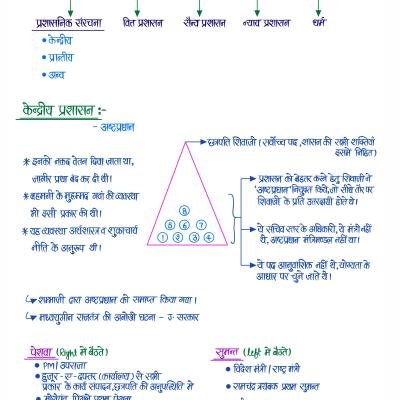 प्रशासनिक संरचना वित्त प्रशासन सैन्य प्रशासन न्याय प्रशासन धर्म
• केन्द्रीय
• प्रान्तीय
• अन्य
केन्द्रीय प्रशासन :-
- अष्टप्रधान
छत्रपति शिवाजी (सर्वोच्च पद, शासन की सभी शक्तियां
इसमें निहित)
* इनको नकद वेतन दिया जाता था,
जागीर प्रथा बंद कर दी थी।
* बहमनी के मुहम्मद गवां की व्यवस्था
भी इसी प्रकार की थी।
* यह व्यवस्था अर्थशास्त्र व शुक्राचार्य
नीति के अनुरूप थी।
8
5 6 7
1 2 3 4
प्रशासन को बेहतर करने हेतु शिवाजी ने
'अष्टप्रधान' नियुक्त किये, जो सीधे तौर पर
शिवाजी के प्रति उत्तरदायी होते थे।
ये सचिव स्तर के अधिकारी, ये मंत्री नहीं
थे, अष्टप्रधान मंत्रिमण्डल नहीं था।
ये पद आनुवांशिक नहीं थे, योग्यता के
आधार पर चुने जाते थे।
शम्भाजी द्वारा अष्टप्रधान को समाप्त किया गया।
मध्ययुगीन राजतंत्र की अनोखी घटना - J. सरकार
पेशवा (Right में बैठते)
• PM/उपराजा
• हुजूर-ए-दफ्तर (कार्यालय) से सभी
प्रकार के कार्य संपादन, छत्रपति की अनुपस्थिति में
सुमन्त (Left में बैठते)
• विदेश मंत्री / राष्ट्र मंत्री
• रामचंद्र त्र्यंबक प्रथम सुमन्त